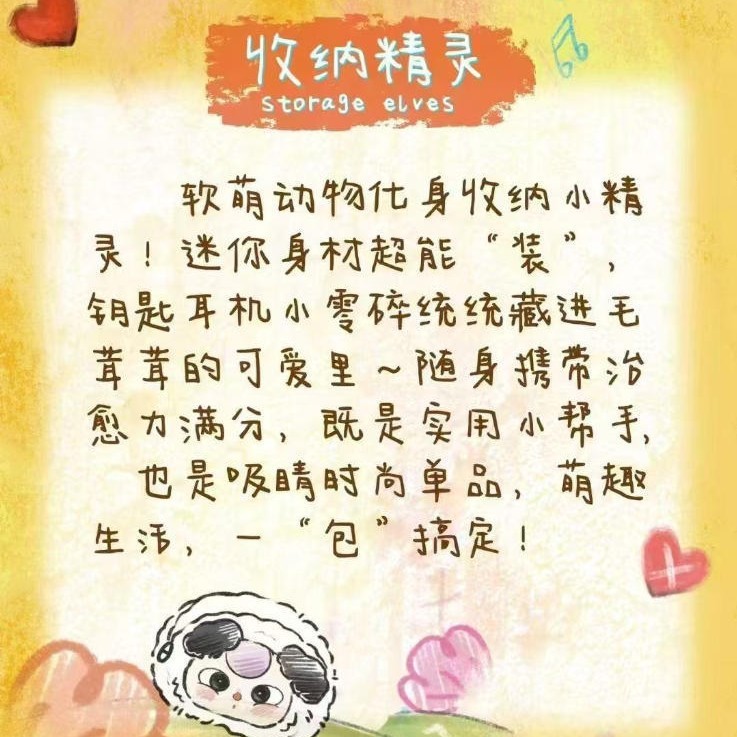 收纳精灵
storage elves
软萌动物化身收纳小精
灵！迷你身材超能“装”，
钥匙耳机小零碎统统藏进毛
茸茸的可爱里~随身携带治
愈力满分，既是实用小帮手，
也是吸睛时尚单品，萌趣
生活，一“包”搞定！